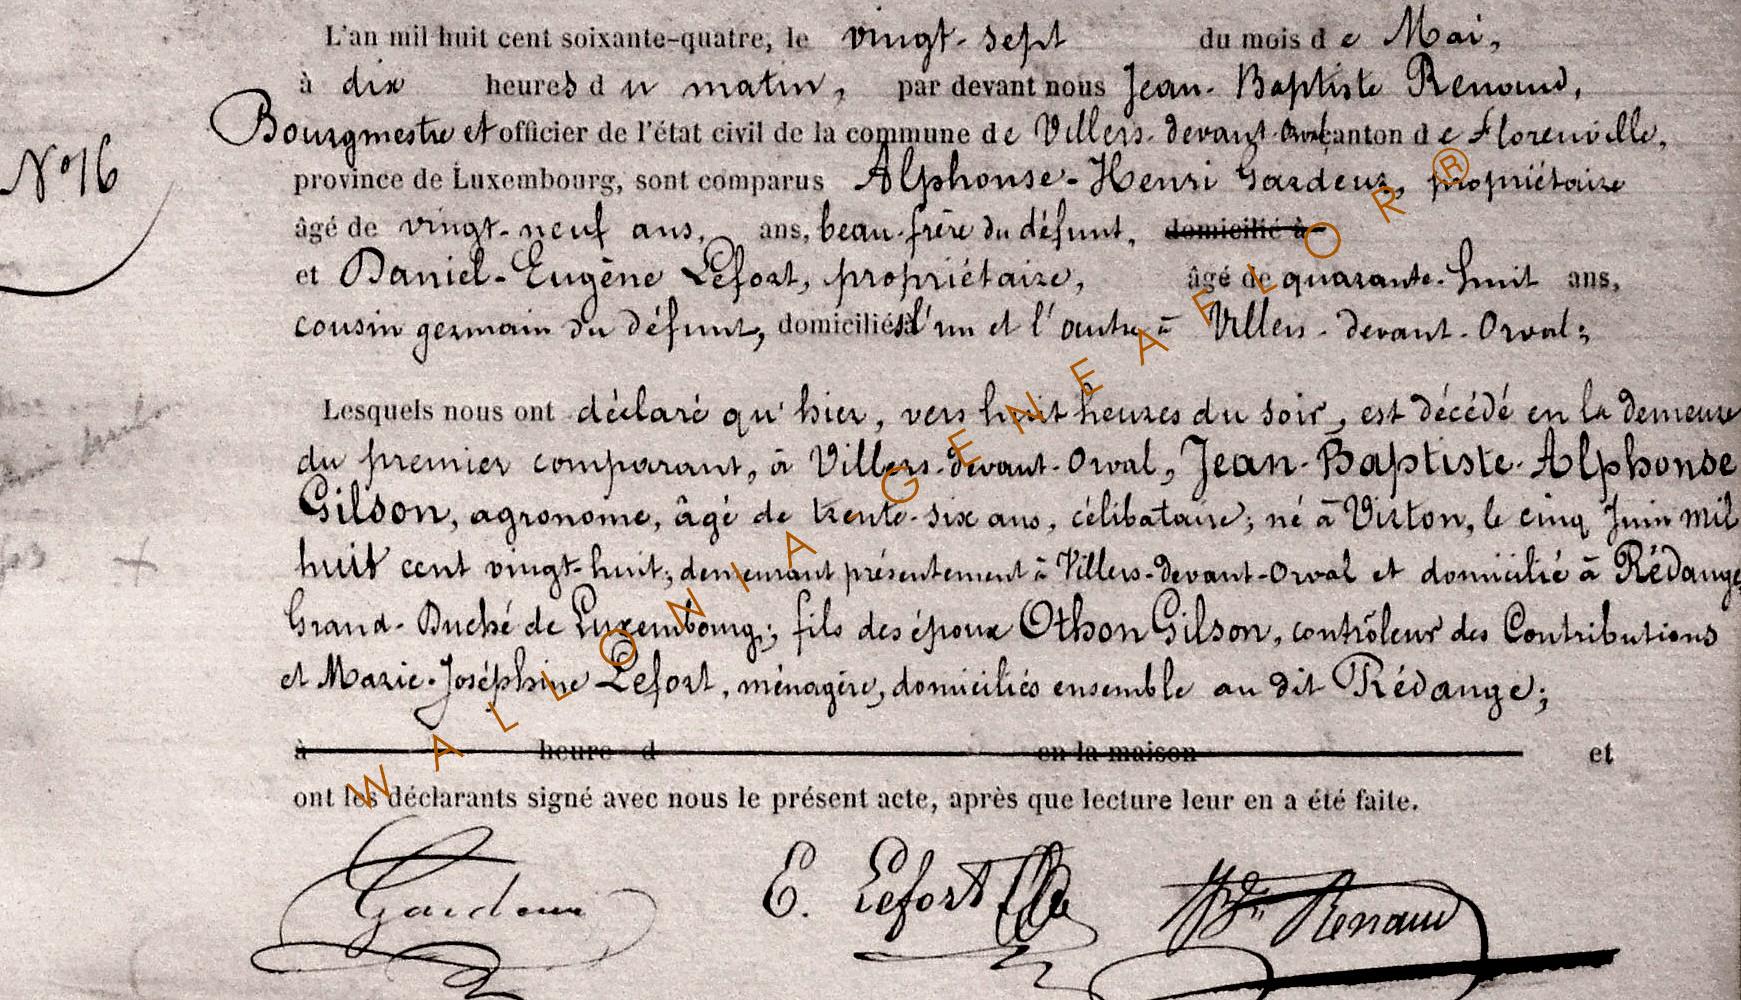 L'an mil huit cent soixante-quatre, le vingt-sept du mois de Mai,
à dix heures du matin, par devant nous Jean-Baptiste Renaud,
Bourgmestre et officier de l'état civil de la commune de Villers-devant-Orval canton de Florenville,
N° 16
province de Luxembourg, sont comparus Alphonse-Henri Gardeur, propriétaire
âgé de vingt-neuf ans, ans, beau-frère du défunt, domicilié à
et Daniel-Eugène Lefort, propriétaire, âgé de quarante-huit ans,
cousin germain du défunt, domiciliés l'un et l'autre à Villers-devant-Orval;
Lesquels nous ont déclaré qu'hier, vers huit heures du soir, est décédé en la demeure
du premier comparant, à Villers-devant-Orval, Jean-Baptiste-Alphonse
Gilson, agronome, âgé de trente-six ans, célibataire; né à Virton, le cinq Juin mil
huit cent vingt-huit; demeurant présentement à Villers-devant-Orval et domicilié à Rédange,
Grand-Duché de Luxembourg; fils des époux Othon Gilson, contrôleur des Contributions
et Marie-Joséphine Lefort, ménagère, domiciliés ensemble au dit Rédange;
à heure d en la maison et
ont les déclarants signé avec nous le présent acte, après que lecture leur en a été faite.
Gardeur E. Lefort Renaud
WALLONIA-GENEAFLOR®